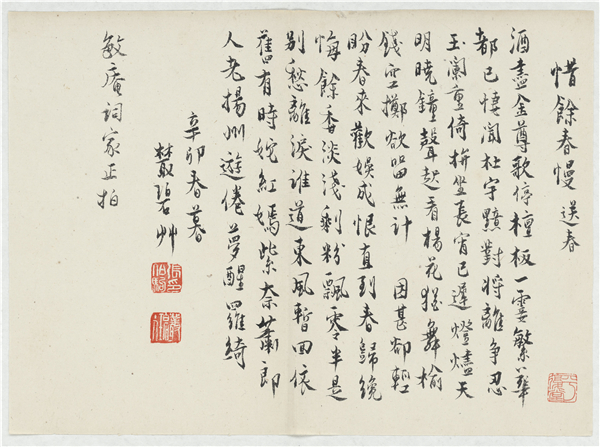 惜餘春慢 送春
酒盡金尊歌停檀板一霎繁華
都已悽聞杜宇黯對將離爭忍
玉闌重倚拚坐長宵已遲燈燼天
明曉鐘聲起看楊花猶舞榆
錢空擲欲留無計 因甚卻輕
盼春來歡娛成恨直到春歸纔
悔餘香淡淺剩粉飄零半是
別愁離淚誰道東風暫回依
舊有時姹紅嫣紫奈蕭郎
人老揚州遊倦夢醒羅綺
辛卯春暮
叢碧艸
敏庵詞家正拍